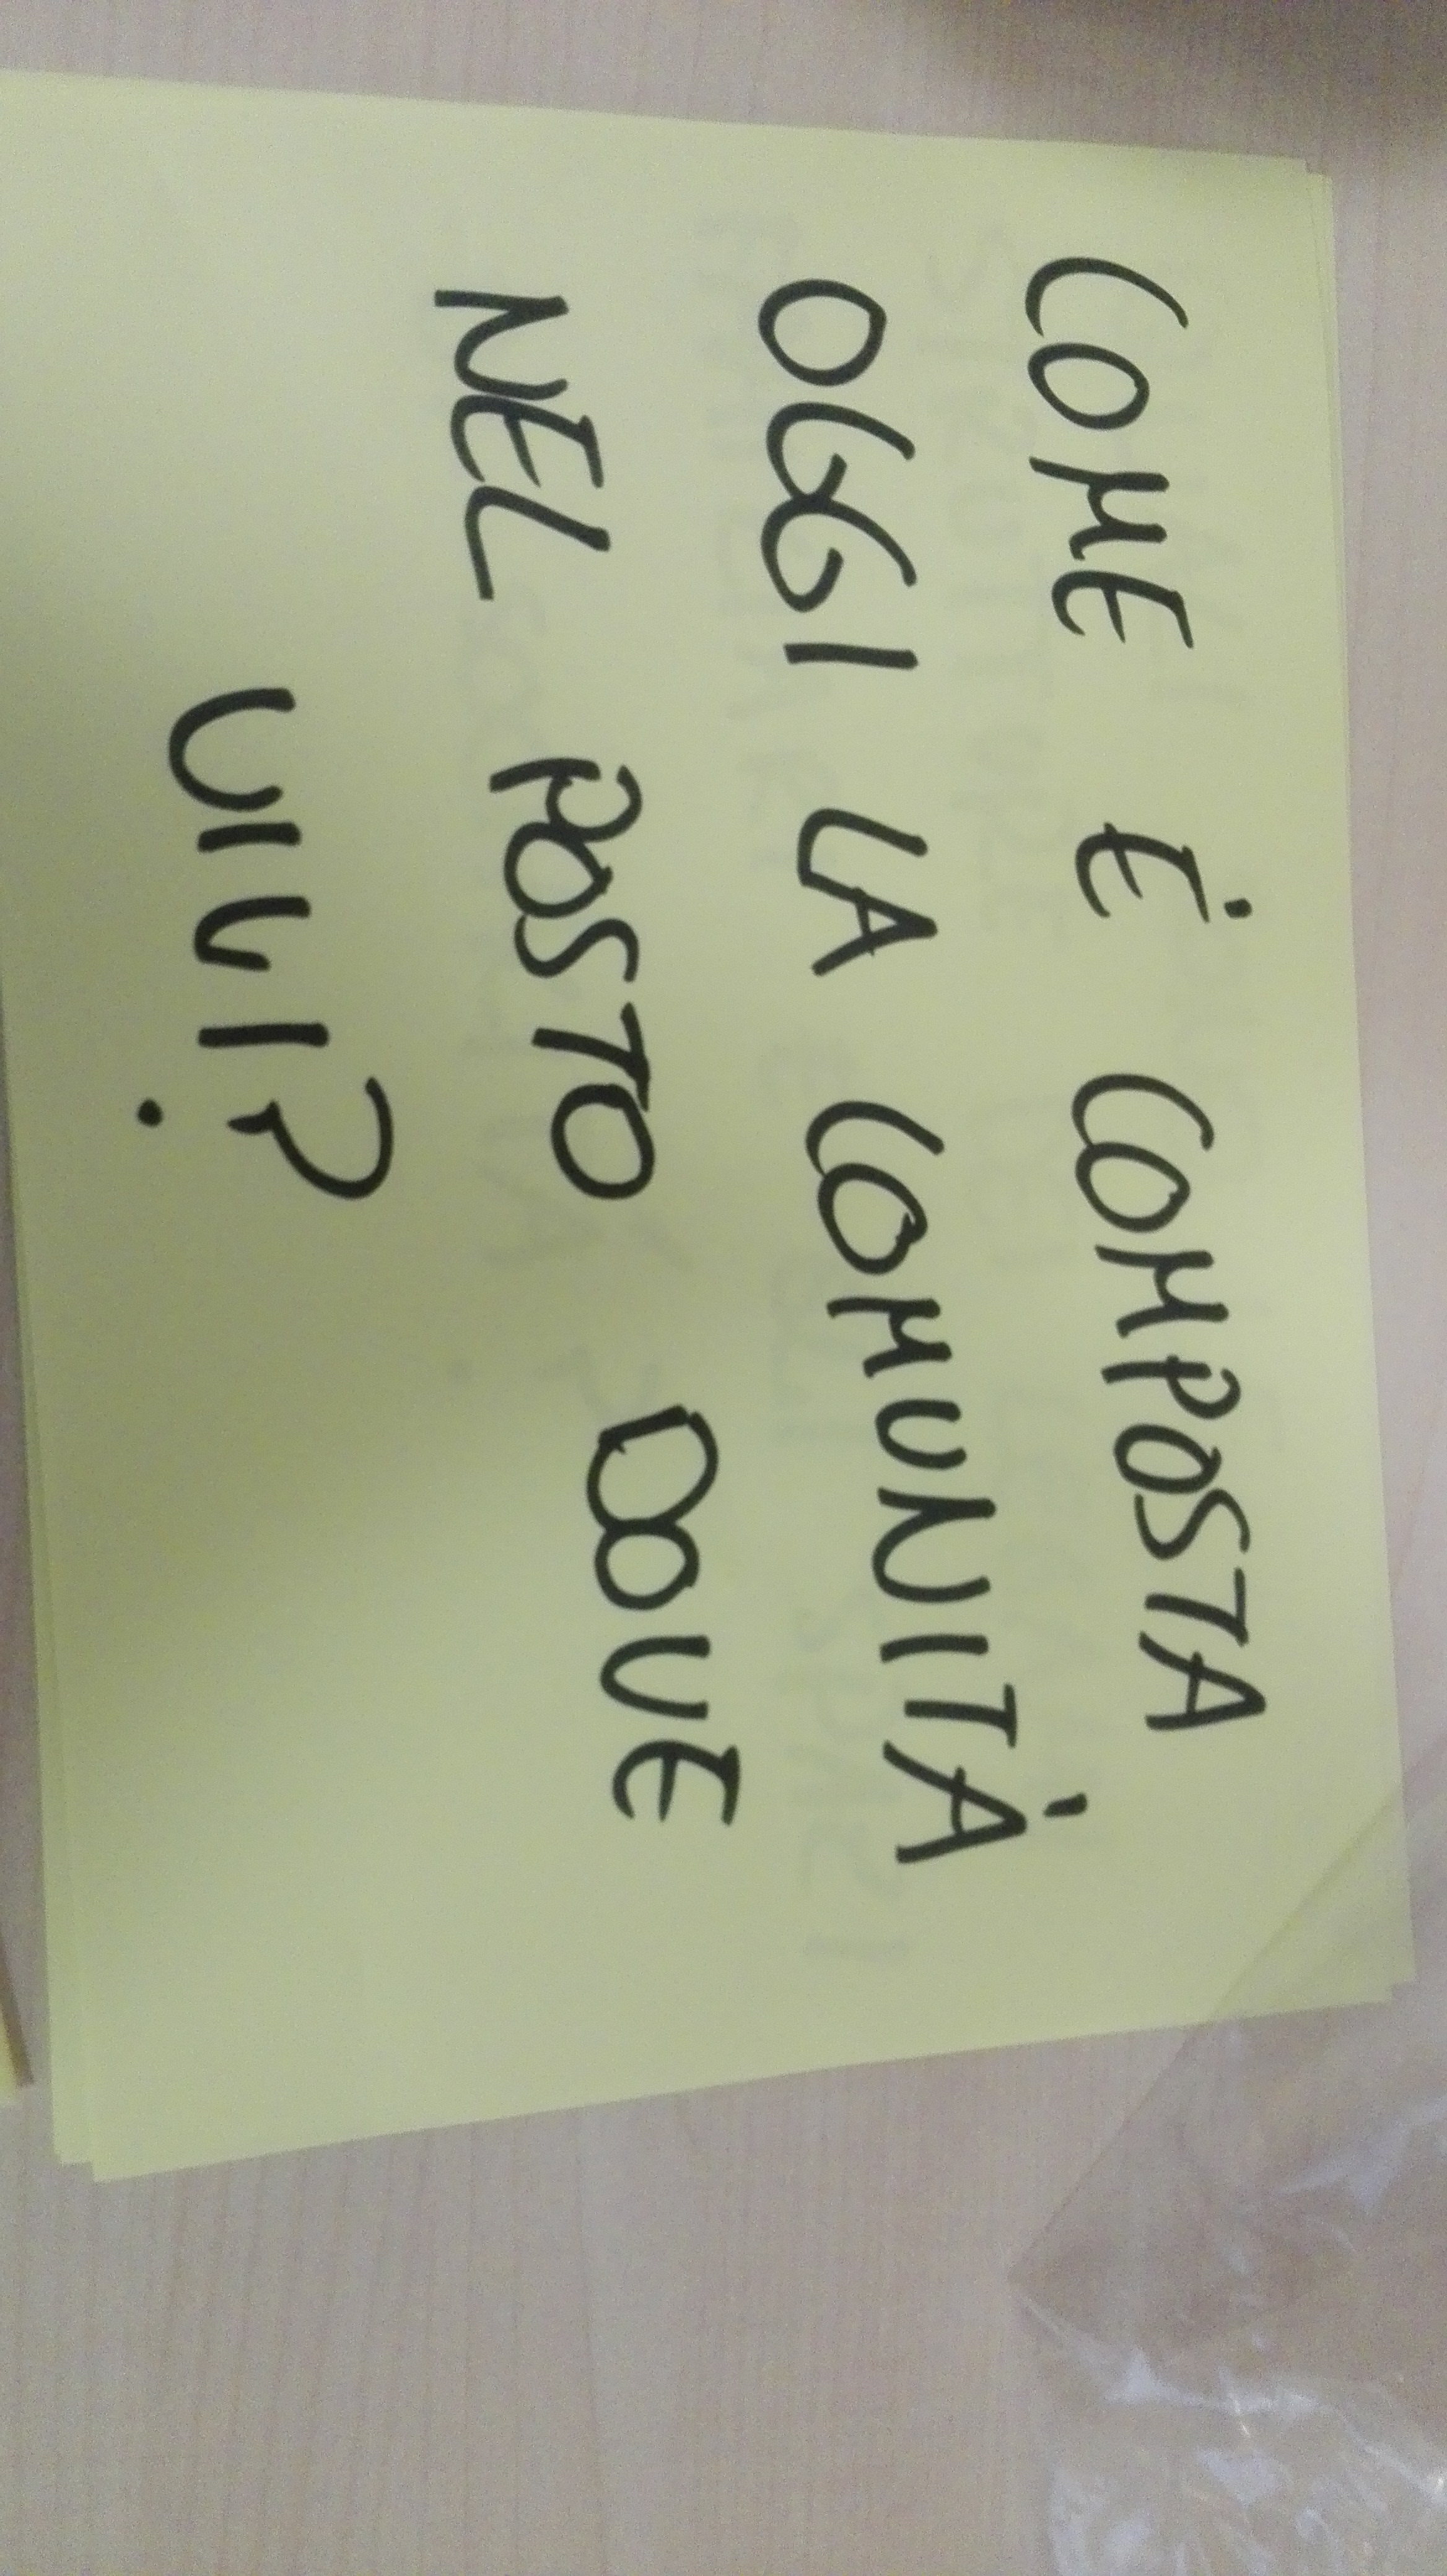 COME È COMPOSTA
OGGI LA COMUNITÀ
NEL POSTO DOVE
VIVI?